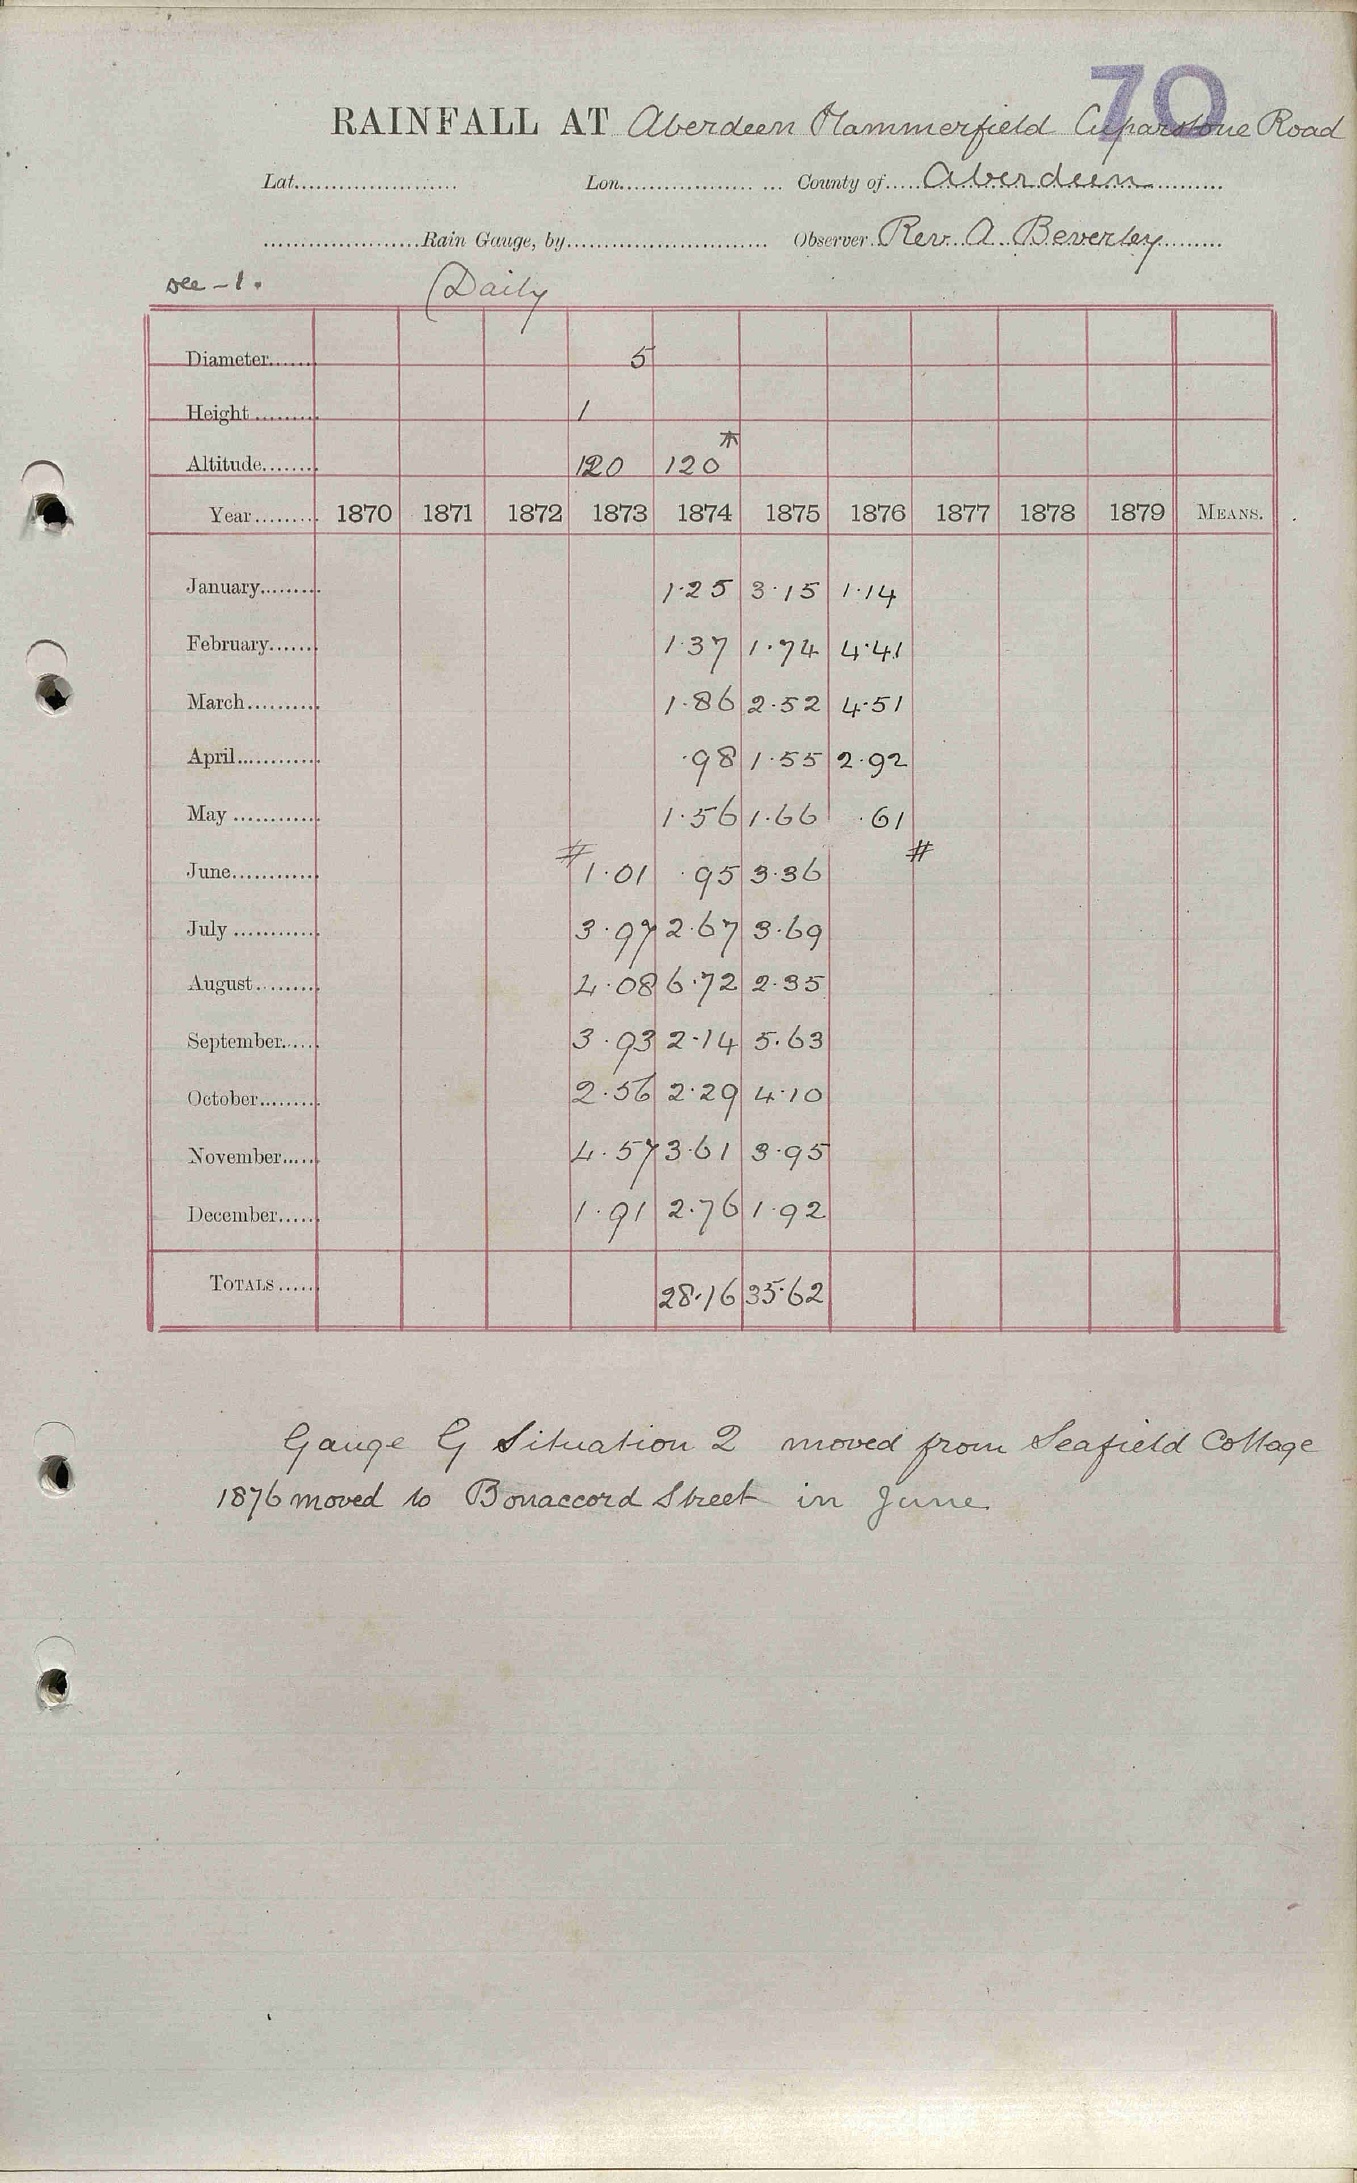 70
RAINFALL AT Aberdeen Hammerfield Cuparstone Road
Lat..................... Lon..................... County of.....Aberdeen.........
.....................Rain Gauge, by........................... Observer.Rev. A. Beverley........
Dec - 1. (Daily
Diameter....... 5
Height ......... 1
Altitude........ 120 120 *
Year......... 1870 1871 1872 1873 1874 1875 1876 1877 1878 1879 MEANS.
January......... 1.25 3.15 1.14
February....... 1.37 1.74 4.41
March.......... 1.86 2.52 4.51
April............ .98 1.55 2.92
May ............ 1.56 1.66 .61
June............ # 1.01 .95 3.36 #
July ............ 3.97 2.67 3.69
August......... 4.08 6.72 2.35
September...... 3.93 2.14 5.63
October......... 2.56 2.29 4.10
November...... 4.57 3.61 3.95
December...... 1.91 2.76 1.92
TOTALS...... 28.16 35.62
Gauge G Situation 2 moved from Seafield Cottage
1876 moved to Bonaccord Street in June.